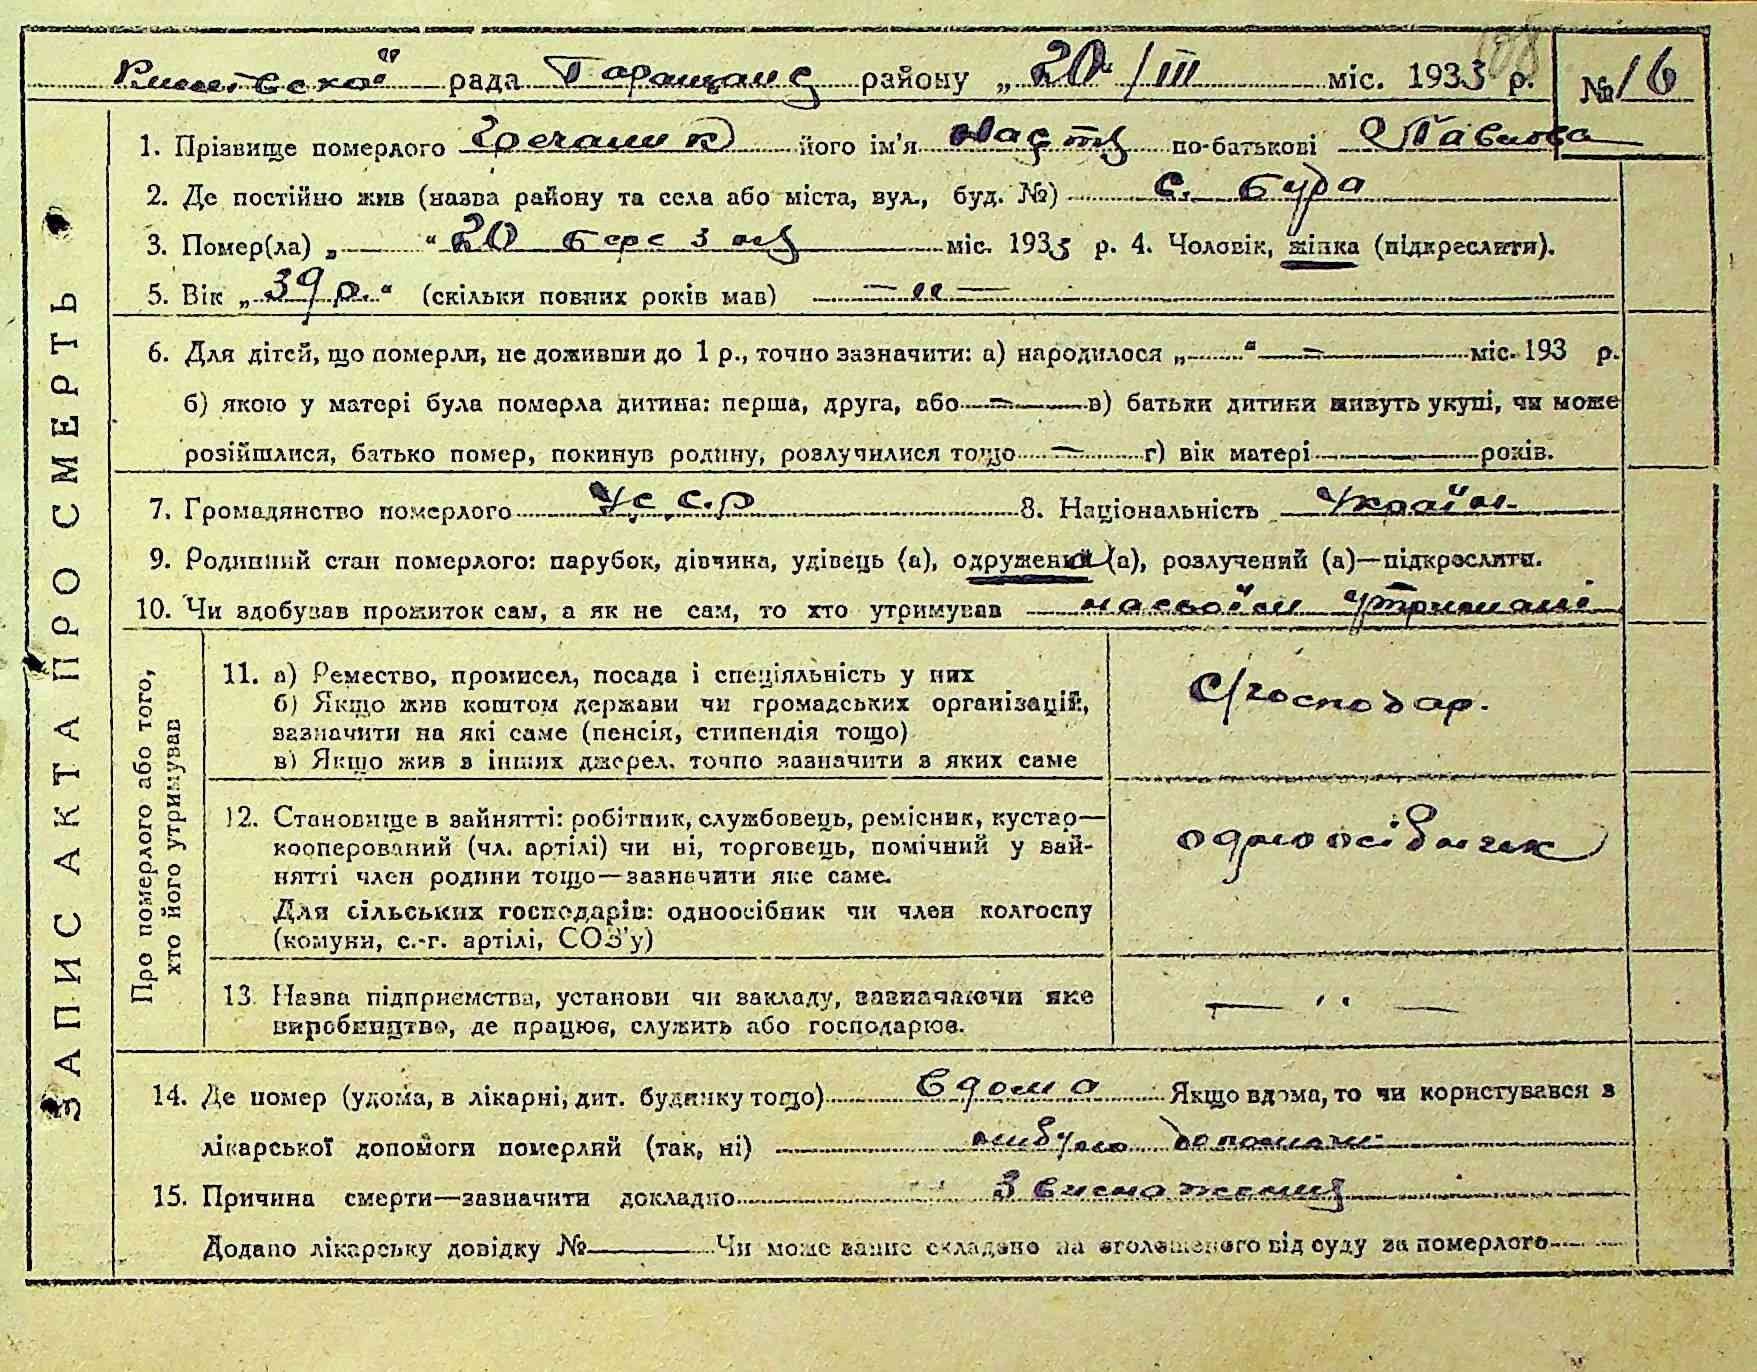 рада Таращанс району „20" / III міс. 1933 р. № 16
ЗАПИС АКТА ПРО СМЕРТЬ
1. Прізвище померлого його ім'я по-батькові Павлова
2. Де постійно жив (назва району та села або міста, вул., буд. №) с. Бура
3. Помер(ла) „ “ 20 березня міс. 1933 р. 4. Чоловік, жінка (підкреслити).
5. Вік „ 39 р. “ (скільки повних років мав) — „ —
6. Для дітей, що померли, не доживши до 1 р., точно зазначити: а) народилося „ “ — міс. 193 р.
б) якою у матері була померла дитина: перша, друга, або — в) батьки дитини живуть укупі, чи може
розійшлися, батько помер, покинув родину, розлучилися тощо — г) вік матері — років.
7. Громадянство померлого УССР 8. Національність Україн.
9. Родинний стан померлого: парубок, дівчина, удівець (а), одружений (а), розлучений (а)—підкреслити.
10. Чи здобував прожиток сам, а як не сам, то хто утримував на своїм утриманні
Про померлого або того,
хто його утримував
11. а) Ремество, промисел, посада і спеціяльність у них
б) Якщо жив коштом держави чи громадських організацій,
зазначити на які саме (пенсія, стипендія тощо)
в) Якщо жив з інших джерел, точно зазначити з яких саме
с/господар.
12. Становище в зайнятті: робітник, службовець, ремісник, кустар—
кооперований (чл. артілі) чи ні, торговець, помічний у зай-
нятті член родини тощо—зазначити яке саме.
Для сільських господарів: одноосібник чи член колгоспу
(комуни, с.-г. артілі, СОЗ'у)
одноосібник
13. Назва підприємства, установи чи закладу, зазначаючи яке
виробництво, де працює, служить або господарює.
— „ —
14. Де помер (удома, в лікарні, дит. будинку тощо) вдома Якщо вдома, то чи користувався з
лікарської допомоги померлий (так, ні)
15. Причина смерти—зазначити докладно З виснаження
Додано лікарську довідку № — Чи може запис складено на оголошеного від суду за померлого —